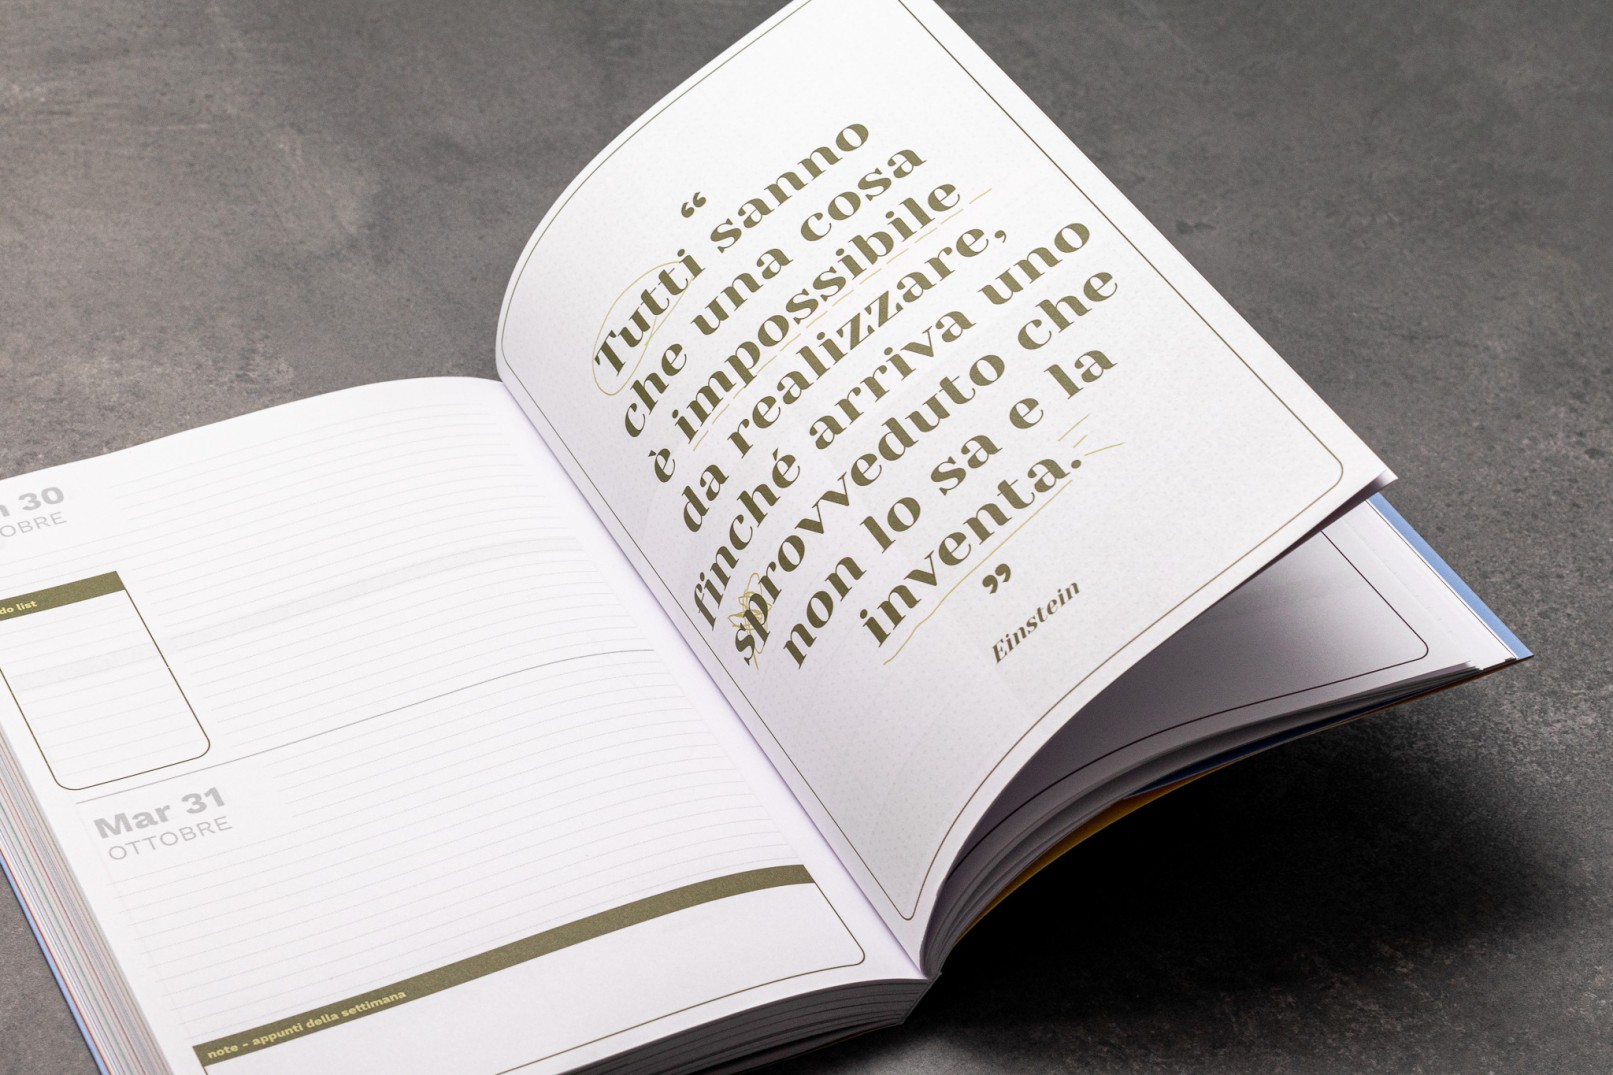 30
OBRE
do list
Mar 31
OTTOBRE
note - appunti della settimana
“
Tutti sanno
che una cosa
è impossibile
da realizzare,
finché arriva uno
sprovveduto che
non lo sa e la
inventa.
”
Einstein